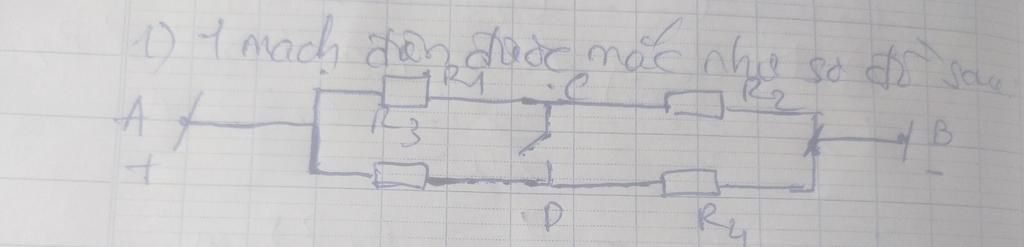 1) 1 mạch điện được mắc như sơ đồ sau
R1 C R2
A R3 B
+ -
D R4